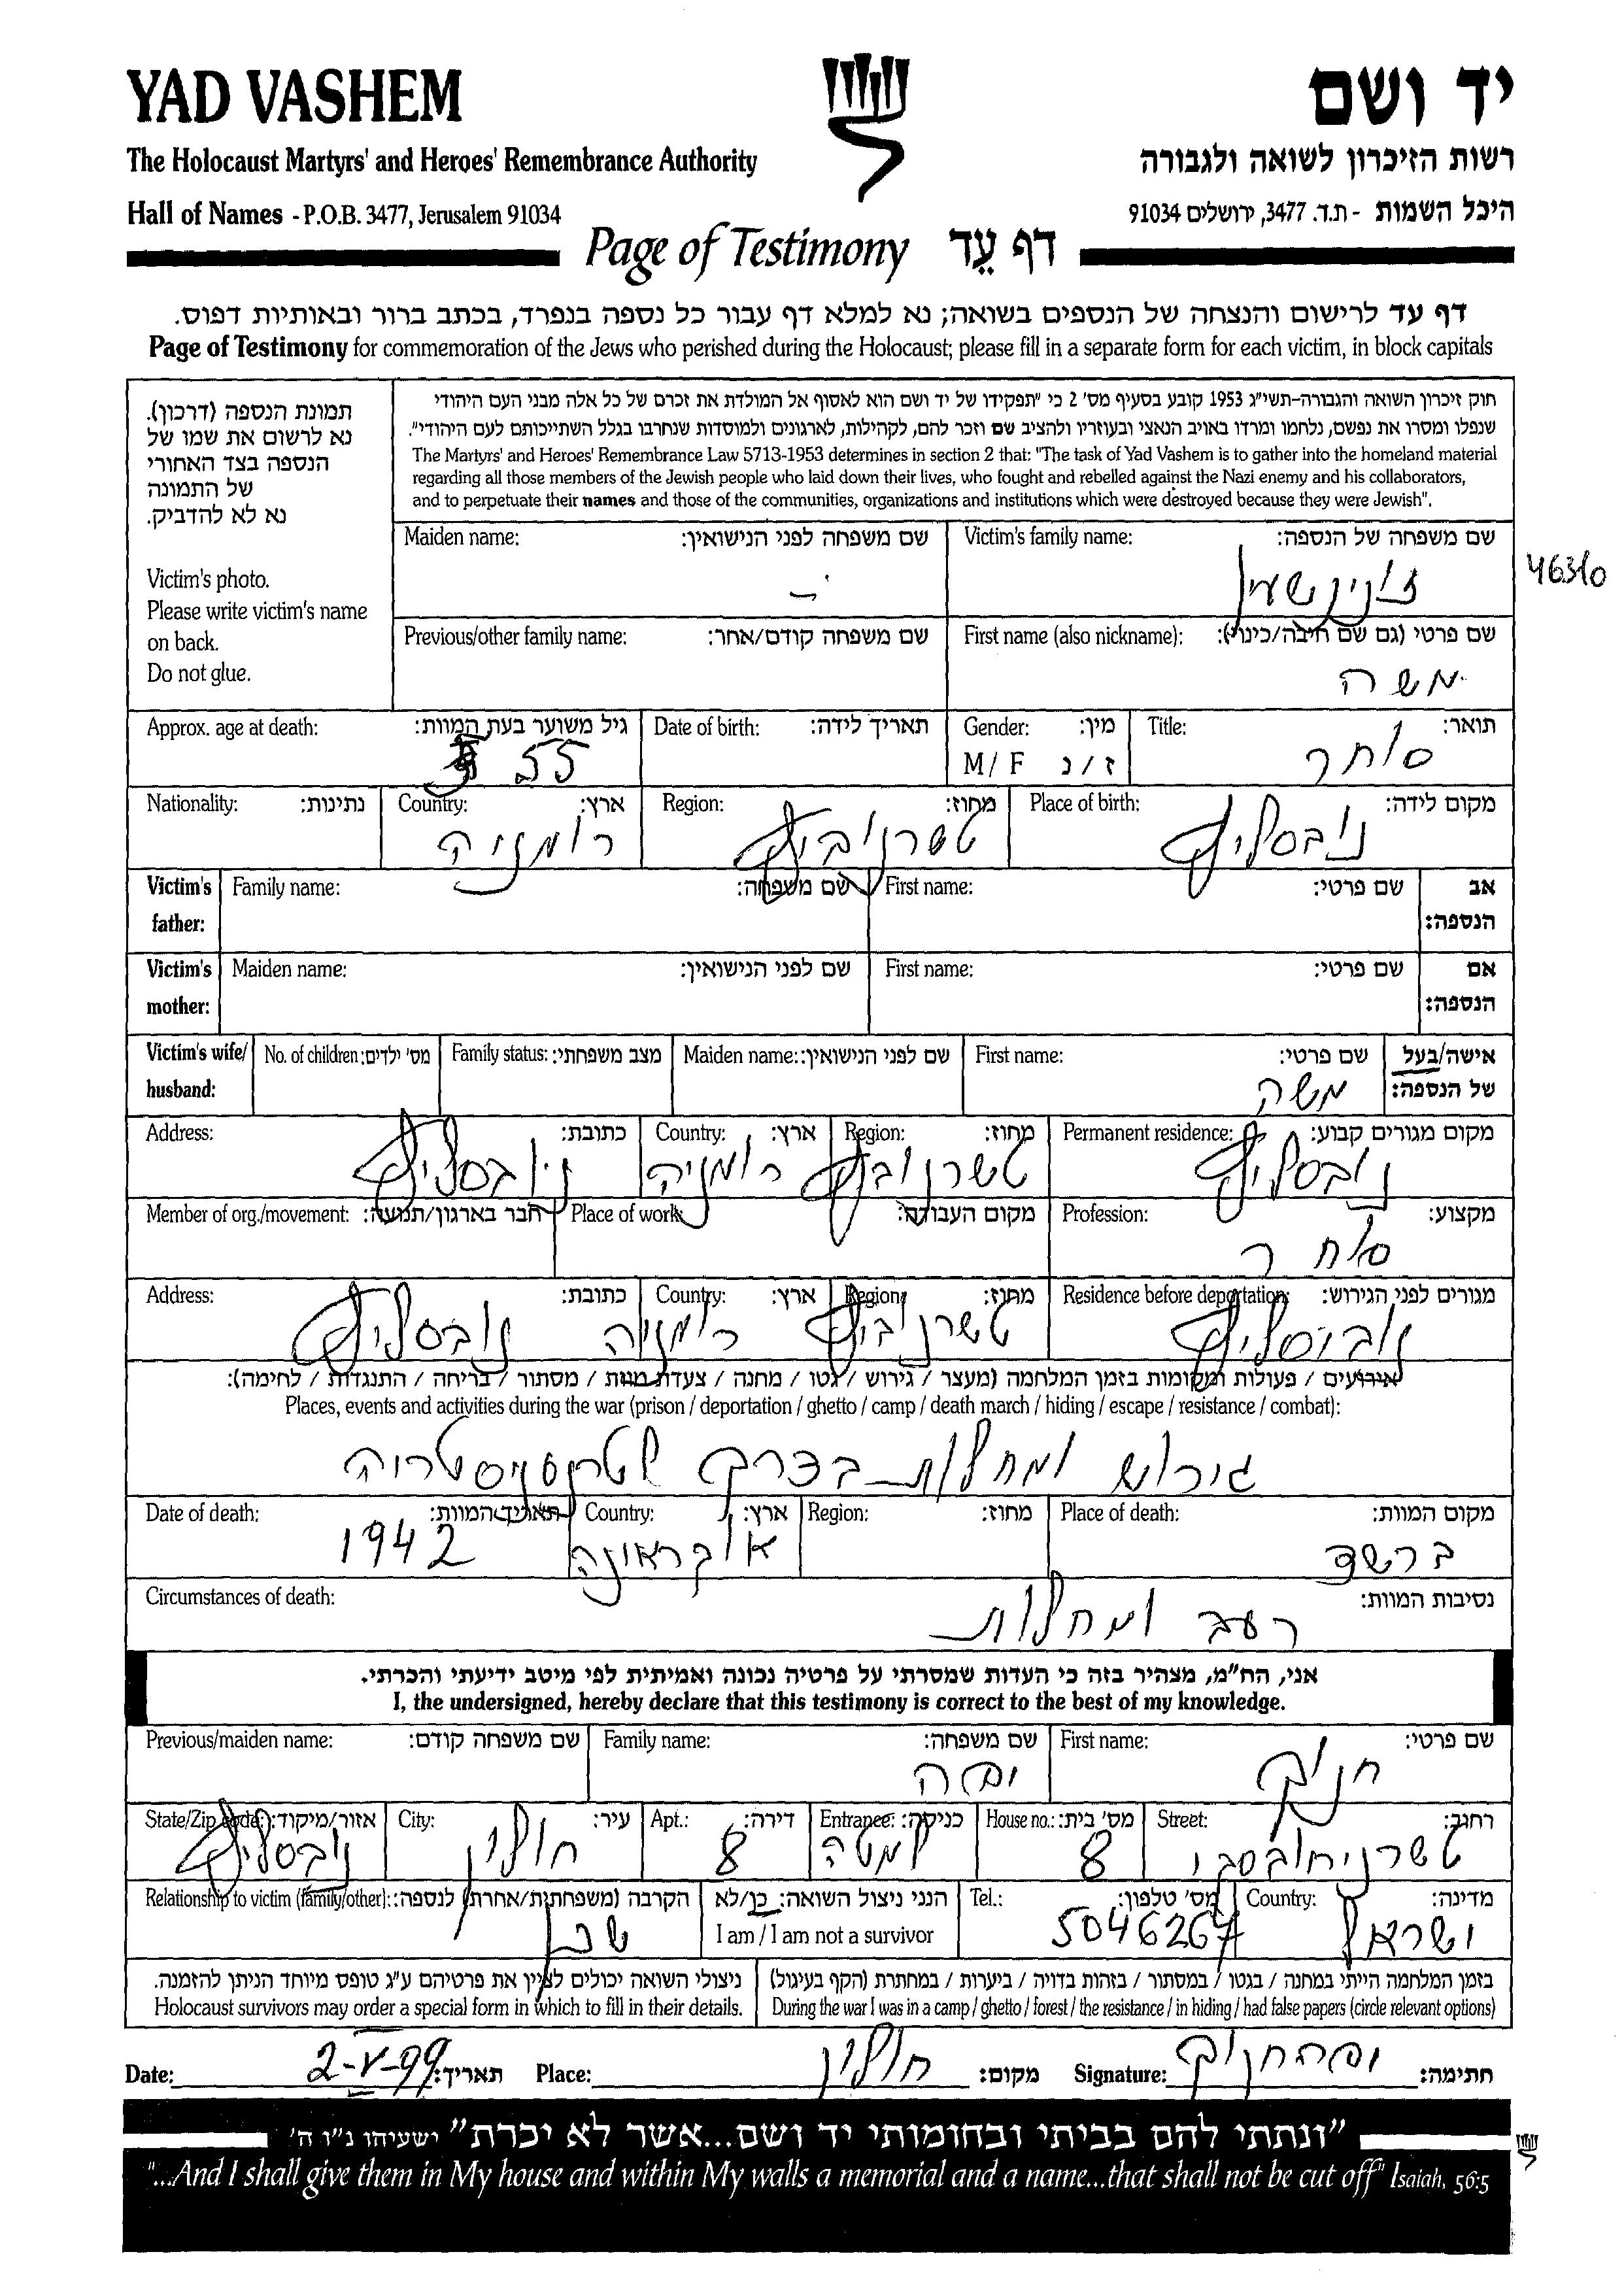 YAD VASHEM
יד ושם
The Holocaust Martyrs' and Heroes' Remembrance Authority
רשות הזיכרון לשואה ולגבורה
Hall of Names - P.O.B. 3477, Jerusalem 91034
היכל השמות - ת.ד. 3477, ירושלים 91034
Page of Testimony דף עֵד
דף עד לרישום והנצחה של הנספים בשואה; נא למלא דף עבור כל נספה בנפרד, בכתב ברור ובאותיות דפוס.
Page of Testimony for commemoration of the Jews who perished during the Holocaust; please fill in a separate form for each victim, in block capitals
תמונת הנספה (דרכון).
נא לרשום את שמו של
הנספה בצד האחורי
של התמונה
נא לא להדביק.
Victim's photo.
Please write victim's name
on back.
Do not glue.
חוק זיכרון השואה והגבורה-תשי"ג 1953 קובע בסעיף מס' 2 כי "תפקידו של יד ושם הוא לאסוף אל המולדת את זכרם של כל אלה מבני העם היהודי
שנפלו ומסרו את נפשם, נלחמו ומרדו באויב הנאצי ובעוזריו ולהציב שם וזכר להם, לקהילות, לארגונים ולמוסדות שנחרבו בגלל השתייכותם לעם היהודי".
The Martyrs' and Heroes' Remembrance Law 5713-1953 determines in section 2 that: "The task of Yad Vashem is to gather into the homeland material
regarding all those members of the Jewish people who laid down their lives, who fought and rebelled against the Nazi enemy and his collaborators,
and to perpetuate their names and those of the communities, organizations and institutions which were destroyed because they were Jewish".
Maiden name: שם משפחה לפני הנישואין:
Victim's family name: שם משפחה של הנספה:
46310
Previous/other family name: שם משפחה קודם/אחר:
First name (also nickname): שם פרטי (גם שם חיבה/כינוי):
משה
Approx. age at death: גיל משוער בעת המוות:
55
Date of birth: תאריך לידה:
Gender: מין:
M / F ז / נ
Title: תואר:
סוחר
Nationality: נתינות:
Country: ארץ:
רומניה
Region: מחוז:
טשרנוביץ
Place of birth: מקום לידה:
נובסליץ
Victim's father: Family name: שם משפחה: First name: שם פרטי: אב הנספה:
Victim's mother: Maiden name: שם לפני הנישואין: First name: שם פרטי: אם הנספה:
Victim's wife/ husband: No. of children: מס' ילדים: Family status: מצב משפחתי: Maiden name: שם לפני הנישואין: First name: שם פרטי: אישה/בעל של הנספה:
משה
Address: כתובת: Country: ארץ: Region: מחוז: Permanent residence: מקום מגורים קבוע:
נובסליץ רומניה טשרנוביץ נובסליץ
Member of org./movement: חבר בארגון/תנועה: Place of work: מקום העבודה: Profession: מקצוע:
סוחר
Address: כתובת: Country: ארץ: Region: מחוז: Residence before deportation: מגורים לפני הגירוש:
נובסליץ רומניה טשרנוביץ נובוסליץ
אירועים / פעולות ומקומות בזמן המלחמה (מעצר / גירוש / גטו / מחנה / צעדת מוות / מסתור / בריחה / התנגדות / לחימה):
Places, events and activities during the war (prison / deportation / ghetto / camp / death march / hiding / escape / resistance / combat):
גירוש ומחלות בדרך לטרנסניסטריה
Date of death: תאריך המוות: Country: ארץ: Region: מחוז: Place of death: מקום המוות:
1942 אוקראינה ברשד
Circumstances of death: נסיבות המוות:
רעב ומחלות
אני, הח"מ, מצהיר בזה כי העדות שמסרתי על פרטיה נכונה ואמיתית לפי מיטב ידיעתי והכרתי.
I, the undersigned, hereby declare that this testimony is correct to the best of my knowledge.
Previous/maiden name: שם משפחה קודם: Family name: שם משפחה: First name: שם פרטי:
יפה חנוך
State/Zip code: אזור/מיקוד: City: עיר: Apt.: דירה: Entrance: כניסה: House no.: מס' בית: Street: רחוב:
נובסליץ חולון 8 למטה 8 טשרניחובסקי
Relationship to victim (family/other): הקרבה (משפחתית/אחרת) לנספה:
שכן
הנני ניצול השואה: כן/לא
I am / I am not a survivor
Tel.: מס' טלפון:
5046267
Country: מדינה:
ישראל
ניצולי השואה יכולים לציין את פרטיהם ע"ג טופס מיוחד הניתן להזמנה.
Holocaust survivors may order a special form in which to fill in their details.
בזמן המלחמה הייתי במחנה / בגטו / במסתור / בזהות בדויה / ביערות / במחתרת (הקף בעיגול)
During the war I was in a camp / ghetto / forest / the resistance / in hiding / had false papers (circle relevant options)
Date: 2-V-99 תאריך: Place: חולון מקום: Signature: יפה חנוך חתימה:
"ונתתי להם בביתי ובחומותי יד ושם...אשר לא יכרת" ישעיהו נ"ו ה'
"...And I shall give them in My house and within My walls a memorial and a name...that shall not be cut off" Isaiah, 56:5